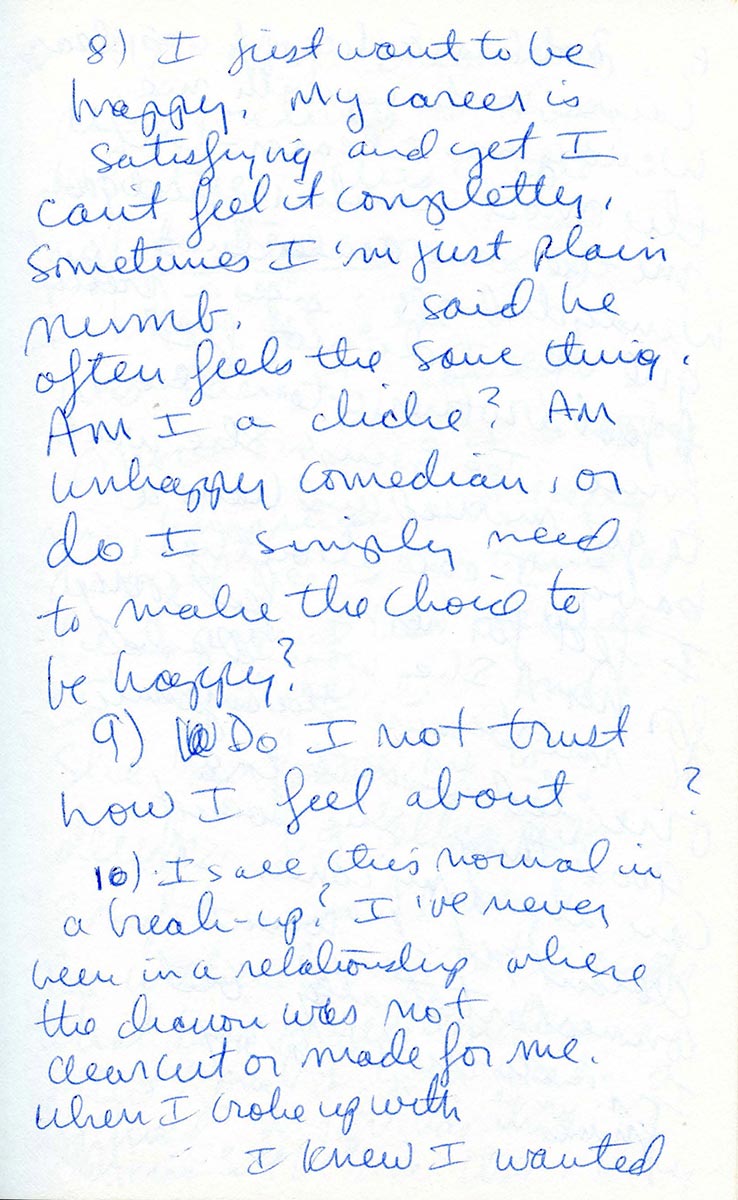 8) I just want to be
happy. My career is
satisfying and yet I
cant feel it completly.
Sometimes I'm just plain
numb. said he
often feels the same thing.
Am I a cliche? An
unhappy comedian, or
do I simply need
to make the choice to
be happy?
9) Do I not trust
how I feel about ?
10). Is all this normal in
a break-up? I've never
been in a relationship where
the decision was not
clearcut or made for me.
When I broke up with
I knew I wanted